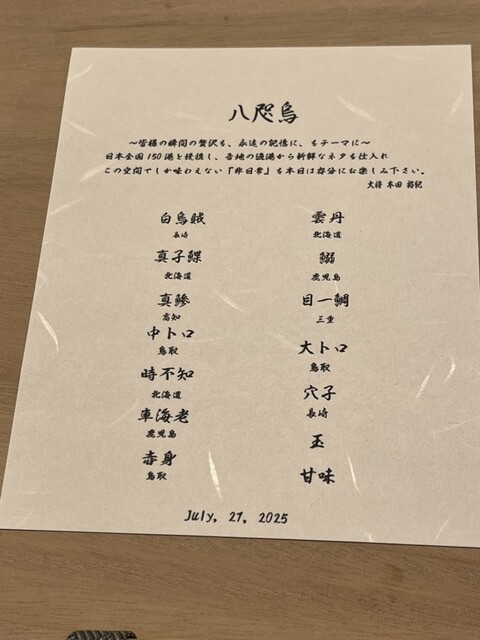 八咫烏
～皆様の瞬間の贅沢を、永遠の記憶に、をテーマに～
日本全国150港と提携し、各地の漁港から新鮮なネタを仕入れ
この空間でしか味わえない「非日常」を本日は存分にお楽しみ下さい。
大将 本田
白烏賊
長崎
真子鰈
北海道
真鯵
高知
中トロ
鳥取
時不知
北海道
車海老
鹿児島
赤身
鳥取
雲丹
北海道
鰯
鹿児島
目一鯛
三重
大トロ
鳥取
穴子
長崎
玉
甘味
July, 27, 2025